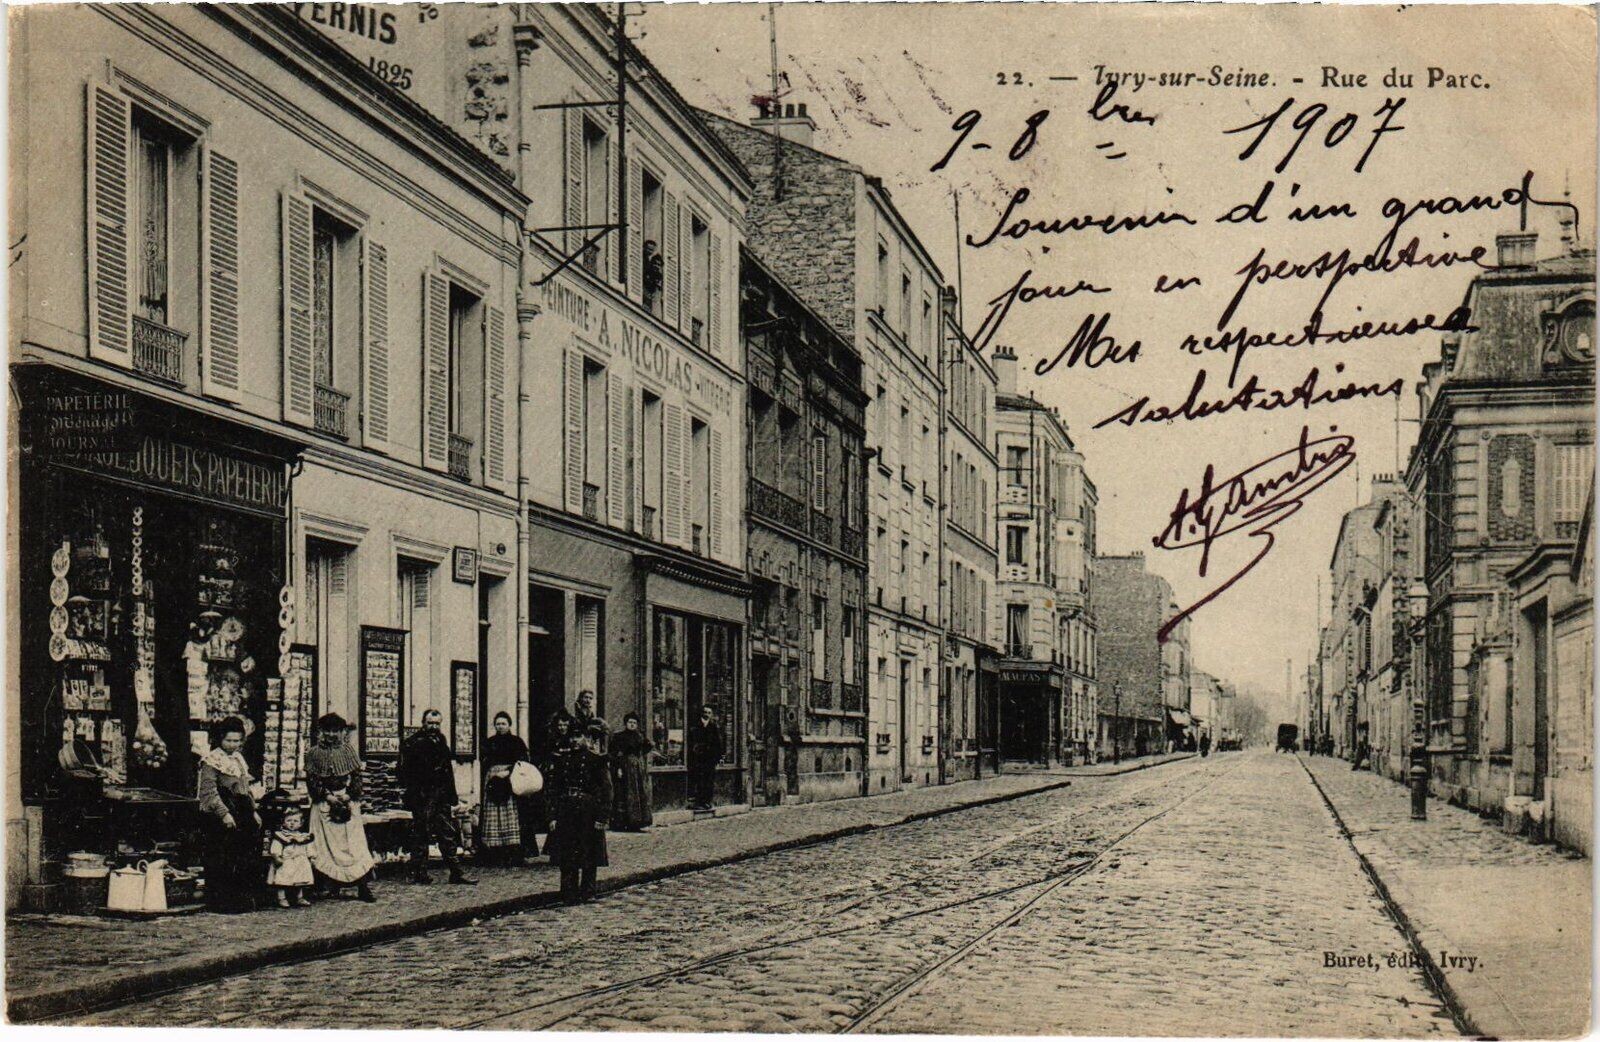 VERNIS
1825
22. — Ivry-sur-Seine. - Rue du Parc.
9-8bre 1907
Souvenir d'un grand
jour en perspective
Mes respectueuses
salutations
PEINTURE - A. NICOLAS - VITRERIE
PAPETERIE
Ménage
JOURNAUX
JOUETS PAPETERIE
MAUPAS
Buret, édit. Ivry.